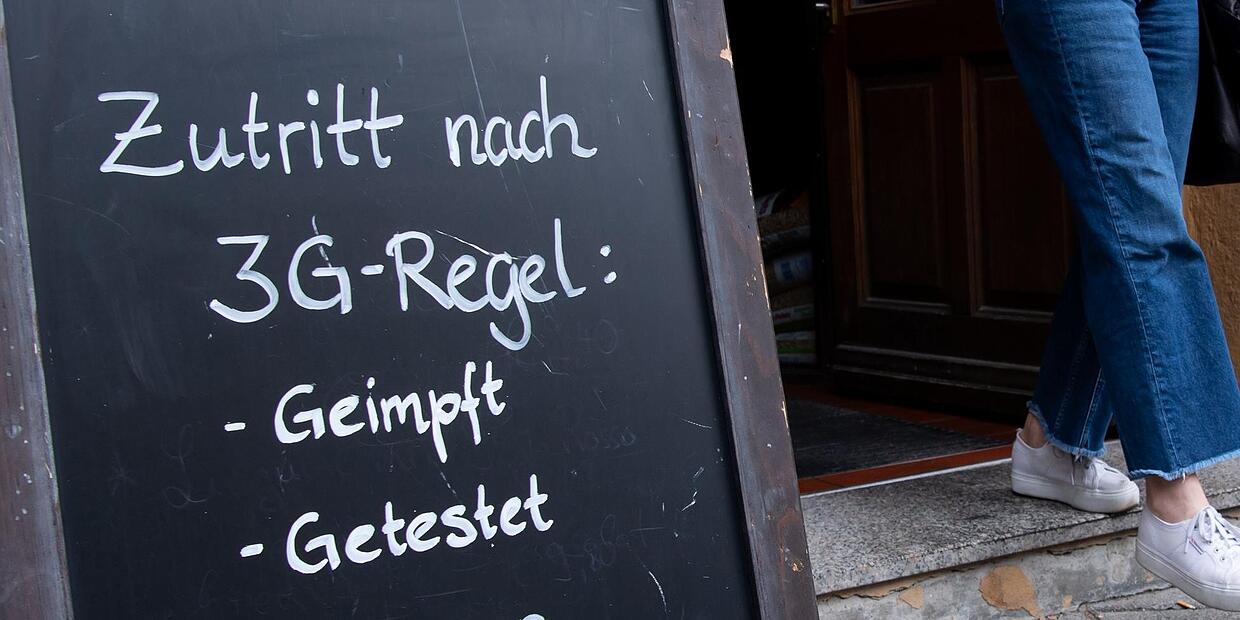 Zutritt nach
3G-Regel:
- Geimpft
- Getestet